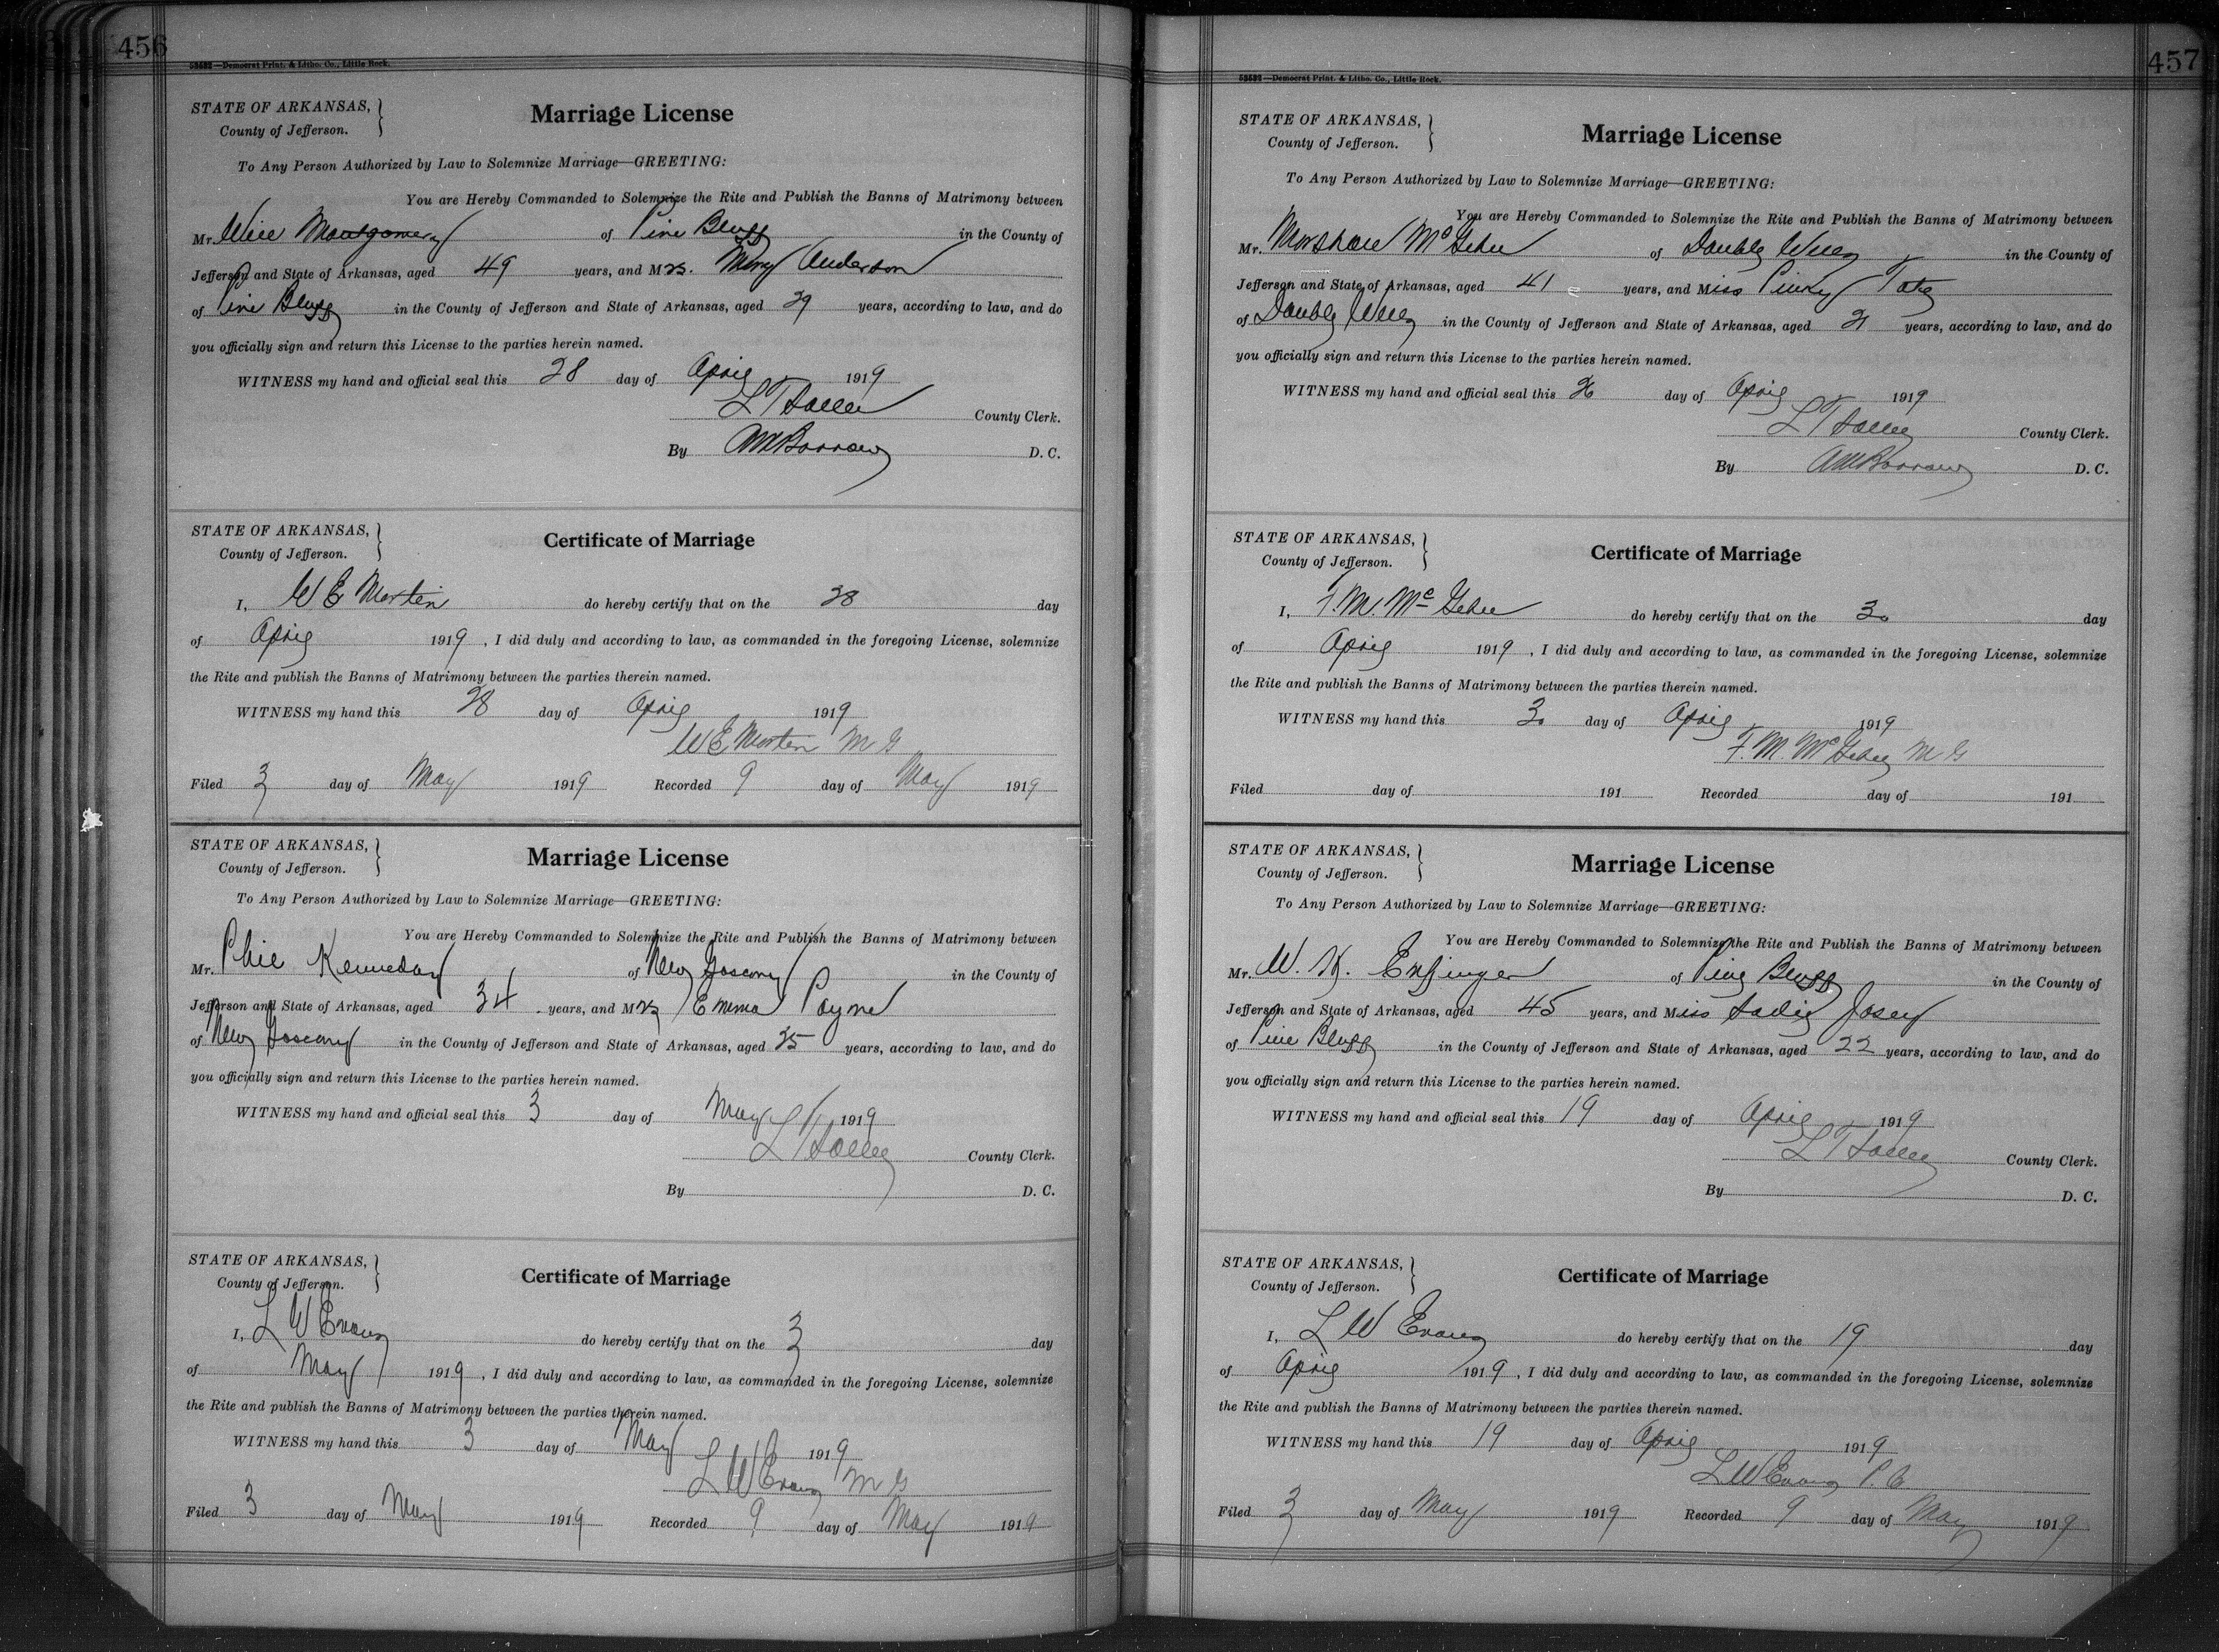 456
53532—Democrat Print. & Litho. Co., Little Rock.
STATE OF ARKANSAS,
County of Jefferson.
Marriage License
To Any Person Authorized by Law to Solemnize Marriage—GREETING:
You are Hereby Commanded to Solemnize the Rite and Publish the Banns of Matrimony between
Mr. Will Montgomery of Pine Bluff in the County of
Jefferson and State of Arkansas, aged 49 years, and Mrs. Mary Anderson
of Pine Bluff in the County of Jefferson and State of Arkansas, aged 39 years, according to law, and do
you officially sign and return this License to the parties herein named.
WITNESS my hand and official seal this 28 day of April 1919
L T Sallee County Clerk.
By AM Barrow D. C.
STATE OF ARKANSAS,
County of Jefferson.
Certificate of Marriage
I, W E Martin do hereby certify that on the 28 day
of April 1919, I did duly and according to law, as commanded in the foregoing License, solemnize
the Rite and publish the Banns of Matrimony between the parties therein named.
WITNESS my hand this 28 day of April 1919
W E Martin M G
Filed 3 day of May 1919 Recorded 9 day of May 1919
STATE OF ARKANSAS,
County of Jefferson.
Marriage License
To Any Person Authorized by Law to Solemnize Marriage—GREETING:
You are Hereby Commanded to Solemnize the Rite and Publish the Banns of Matrimony between
Mr. Phil Kenneday of New Gascony in the County of
Jefferson and State of Arkansas, aged 34 years, and Mrs Emma Payne
of New Gascony in the County of Jefferson and State of Arkansas, aged 35 years, according to law, and do
you officially sign and return this License to the parties herein named.
WITNESS my hand and official seal this 3 day of May 1919
L T Sallee County Clerk.
By D. C.
STATE OF ARKANSAS,
County of Jefferson.
Certificate of Marriage
I, L W Evans do hereby certify that on the 3 day
of May 1919, I did duly and according to law, as commanded in the foregoing License, solemnize
the Rite and publish the Banns of Matrimony between the parties therein named.
WITNESS my hand this 3 day of May 1919
L W Evans M G
Filed 3 day of May 1919 Recorded 9 day of May 1919
457
53532—Democrat Print. & Litho. Co., Little Rock.
STATE OF ARKANSAS,
County of Jefferson.
Marriage License
To Any Person Authorized by Law to Solemnize Marriage—GREETING:
You are Hereby Commanded to Solemnize the Rite and Publish the Banns of Matrimony between
Mr. Marshall McGehee of Double Wells in the County of
Jefferson and State of Arkansas, aged 41 years, and Miss Pinky Tate
of Double Wells in the County of Jefferson and State of Arkansas, aged 21 years, according to law, and do
you officially sign and return this License to the parties herein named.
WITNESS my hand and official seal this 26 day of April 1919
L T Sallee County Clerk.
By AM Barrow D. C.
STATE OF ARKANSAS,
County of Jefferson.
Certificate of Marriage
I, F. M. McGehee do hereby certify that on the 30 day
of April 1919, I did duly and according to law, as commanded in the foregoing License, solemnize
the Rite and publish the Banns of Matrimony between the parties therein named.
WITNESS my hand this 30 day of April 1919
F. M. McGehee M G
Filed day of 191 Recorded day of 191
STATE OF ARKANSAS,
County of Jefferson.
Marriage License
To Any Person Authorized by Law to Solemnize Marriage—GREETING:
You are Hereby Commanded to Solemnize the Rite and Publish the Banns of Matrimony between
Mr. W. H. Enfinger of Pine Bluff in the County of
Jefferson and State of Arkansas, aged 45 years, and Miss Sadie Josey
of Pine Bluff in the County of Jefferson and State of Arkansas, aged 22 years, according to law, and do
you officially sign and return this License to the parties herein named.
WITNESS my hand and official seal this 19 day of April 1919
L T Sallee County Clerk.
By D. C.
STATE OF ARKANSAS,
County of Jefferson.
Certificate of Marriage
I, L W Evans do hereby certify that on the 19 day
of April 1919, I did duly and according to law, as commanded in the foregoing License, solemnize
the Rite and publish the Banns of Matrimony between the parties therein named.
WITNESS my hand this 19 day of April 1919
L W Evans P. C
Filed 3 day of May 1919 Recorded 9 day of May 1919